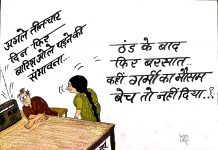 अगले तीन-चार
दिन फिर
बारिश ओले पड़ने की
संभावना...
ठंड के बाद
फिर बरसात
कहीं गर्मी का मौसम
बेच तो नहीं दिया..?